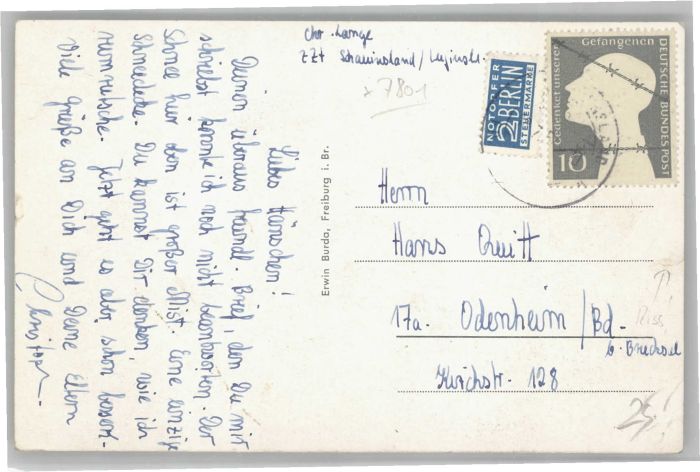 Chr. Lange
zZt Schauinsland/
x 7801
NOTOPFER
2 BERLIN
STEUERMARKE
Gedenket unserer Gefangenen
DEUTSCHE BUNDESPOST
10
Liebes Hänschen!
Deinen überaus freundl. Brief, den Du mir
schriebst konnte ich noch nicht beantworten. Der
Schnee hier oben ist großer Mist. Eine einzige
Schmiede. Du kannst Dir denken, wie ich
rumrutsche. Jetzt geht es aber schon besser.
Viele Grüße an Dich und Deine Eltern
Christoph.
Erwin Burda, Freiburg i. Br.
Herrn
Hans Quitt
17a. Odenheim/Bd.
b. Bruchsal
Kirchstr. 128
Riss
25.-